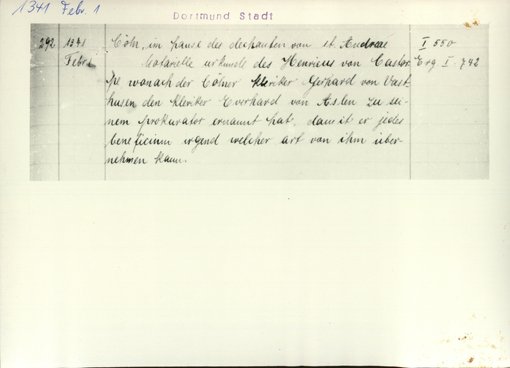 1341 Febr. 1
Dortmund Stadt
292 1341 Cöln, im hause des dechanten von st. Andreas I 550
Febr. 1 Notarielle urkunde des Henricus von Castor Erg I. 742
pe wonach der Cölner kleriker Gerhard von Vast
husen den kleriker Everhard von Aslen zu sei
nem prokurator ernannt hat, damit er jedes
beneficium irgend welcher art von ihm über-
nehmen kann.